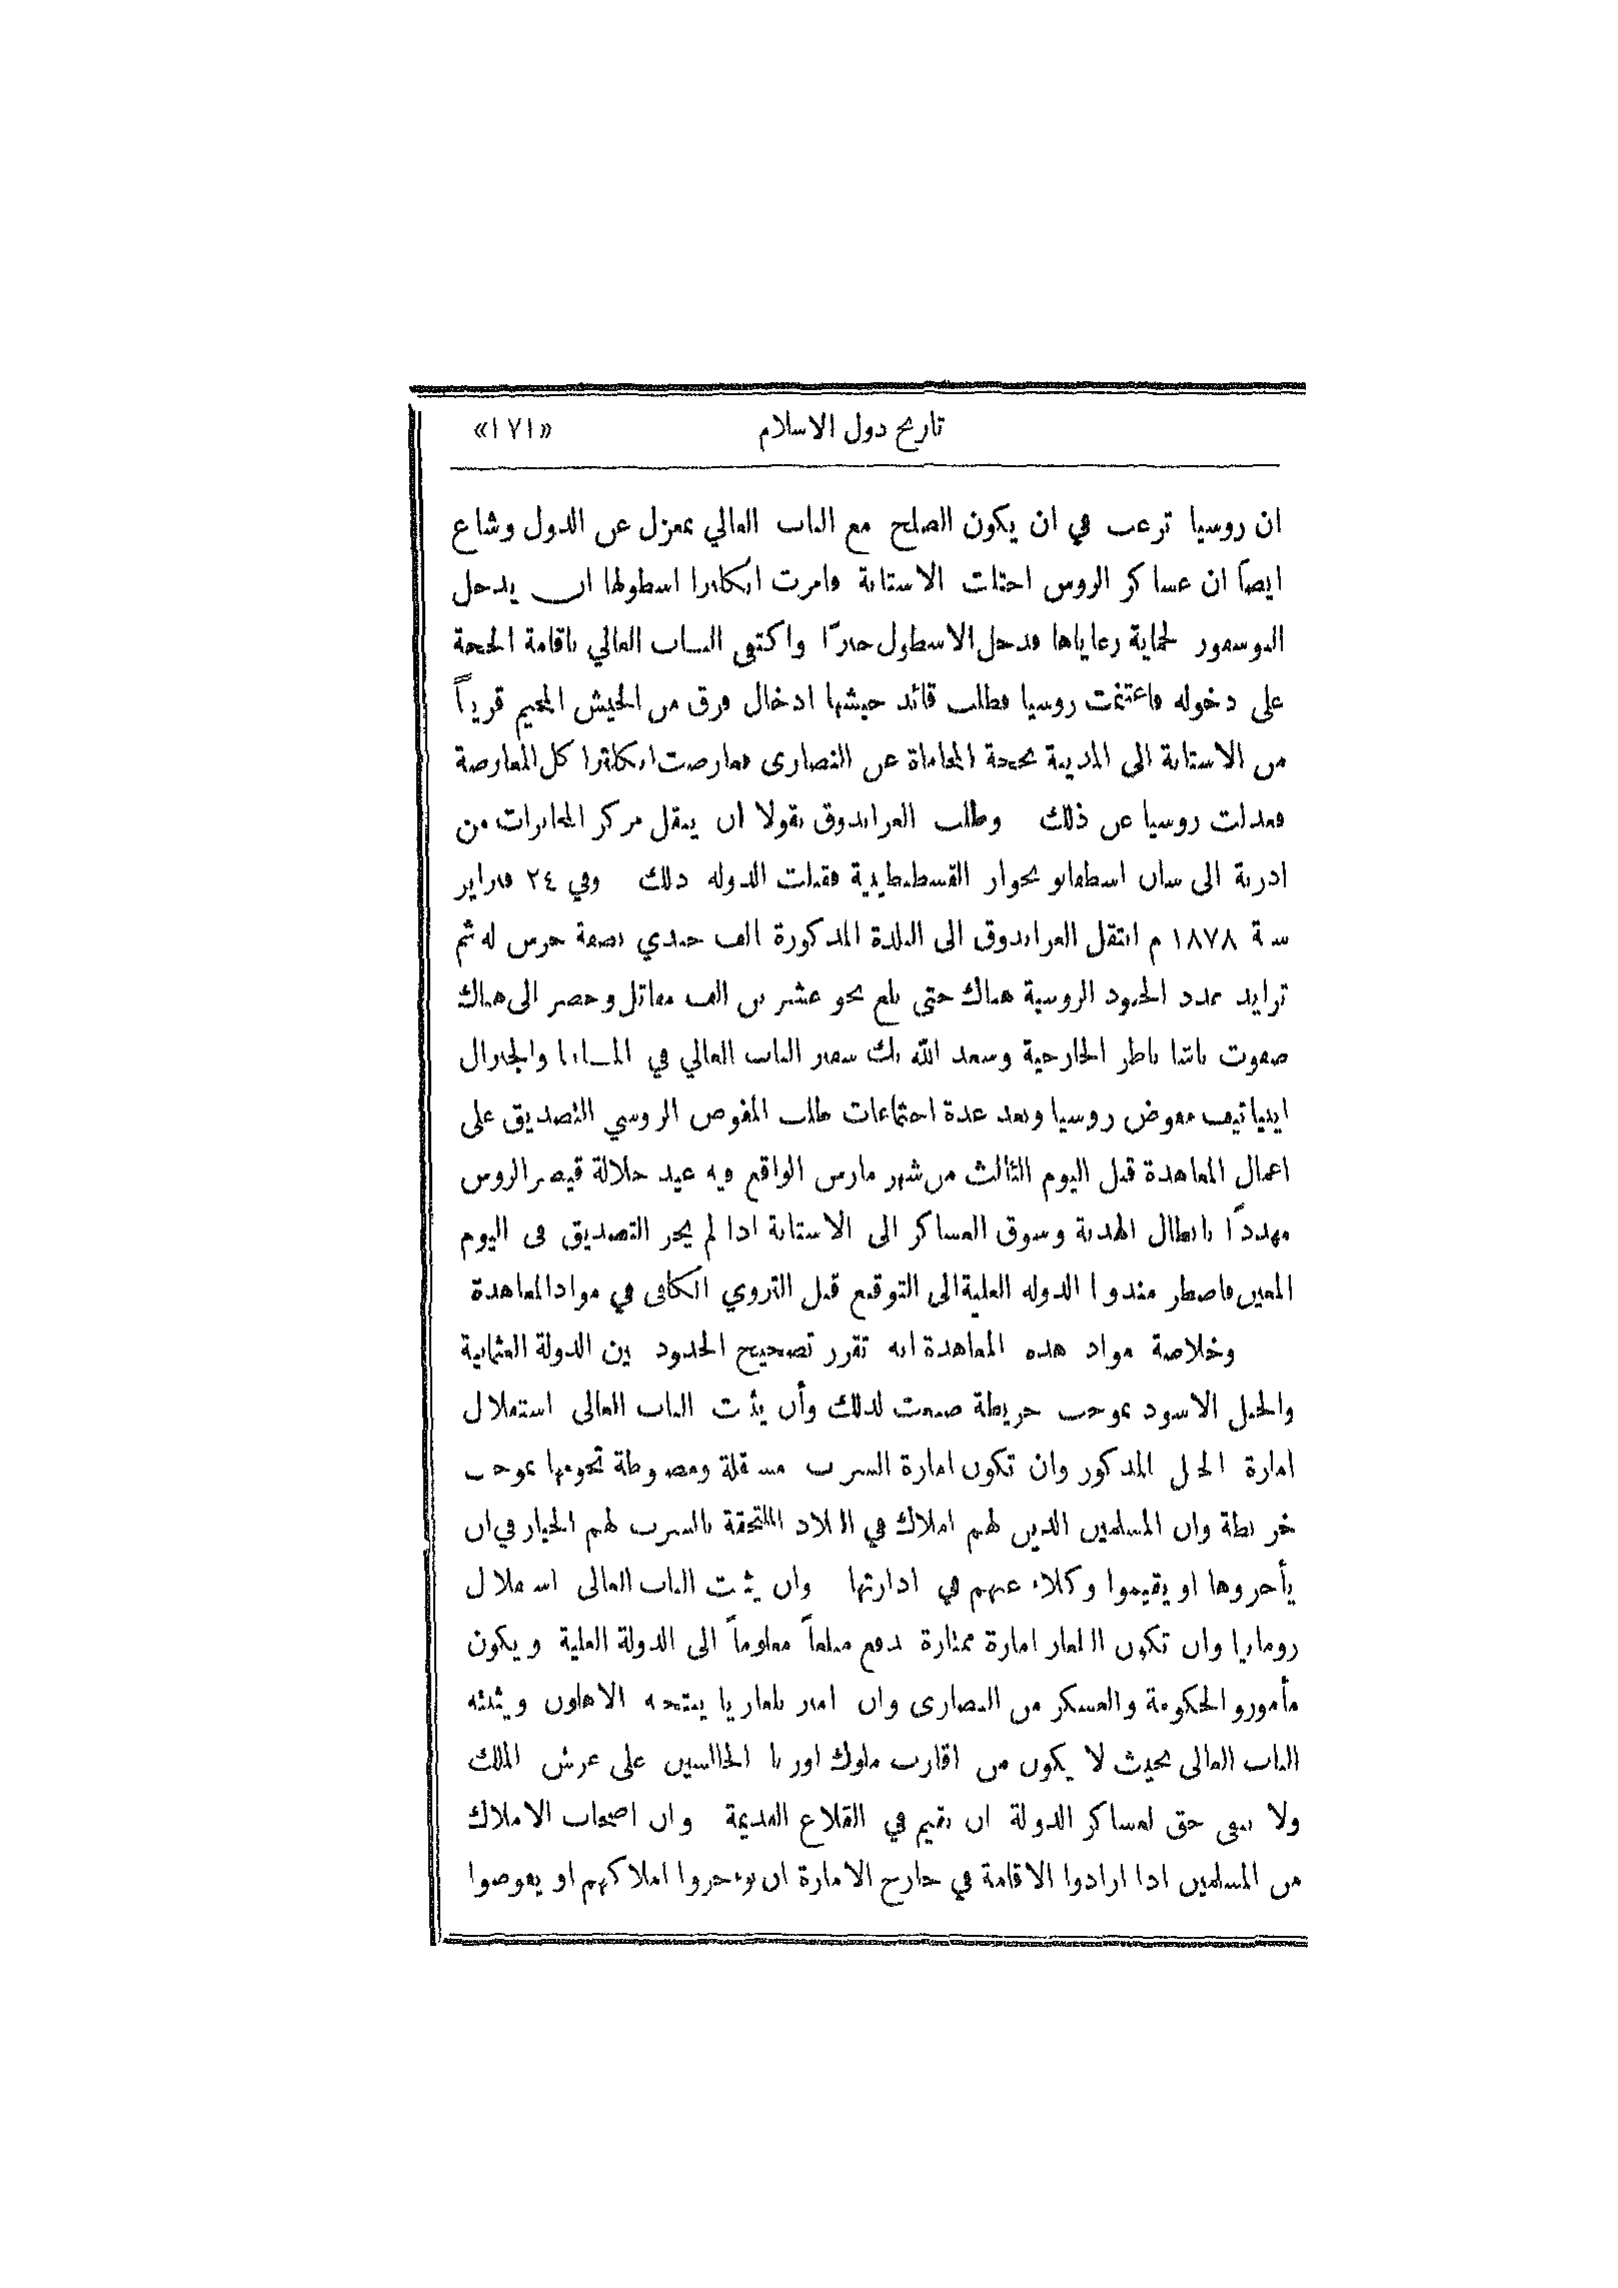 تاريخ دول الاسلام «١٧١»
ان روسيا ترغب في ان يكون الصلح مع الباب العالي بمعزل عن الدول وشاع
ايضاً ان عساكر الروس احتلت الاستانة فامرت انكلترا اسطولها ان يدخل
البوسفور لحماية رعاياها فدخل الاسطول جبرًا واكتفى الباب العالي باقامة الحجة
على دخوله فاغتنمت روسيا فطلب قائد جيشها ادخال فرق من الجيش المخيم قريباً
من الاستانة الى المدينة بحجة المحاماة عن النصارى فعارضت انكلترا كل المعارضة
فعدلت روسيا عن ذلك وطلب الغراندوق نقولا ان ينقل مركز المخابرات من
ادرنة الى سان اسطفانو بجوار القسطنطينية فقبلت الدوله ذلك وفي ٢٤ فبراير
سنة ١٨٧٨ م انتقل الغراندوق الى البلدة المذكورة الف جندي بصفة حرس له ثم
تزايد عدد الجنود الروسية هناك حتى بلغ نحو عشرين الف مقاتل وحضر الى هناك
صفوت باشا ناظر الخارجية وسعد الله بك سفير الباب العالي في المانيا والجنرال
ايناتيف مفوض روسيا وبعد عدة اجتماعات طلب المفوض الروسي التصديق على
اعمال المعاهدة قبل اليوم الثالث من شهر مارس الواقع فيه عيد جلالة قيصر الروس
مهددًا بابطال الهدنة وسوق العساكر الى الاستانة اذا لم يجر التصديق في اليوم
المعين فاضطر مندوبا الدوله العلية الى التوقيع قبل التروي الكافي في مواد المعاهدة
وخلاصة مواد هذه المعاهدة انه تقرر تصحيح الحدود بين الدولة العثمانية
والجبل الاسود بموجب خريطة صنعت لذلك وأن يثبت الباب العالى استقلال
امارة الجبل المذكور وان تكون امارة السرب مستقلة ومضبوطة تخومها بموجب
خريطة وان المسلمين الذين لهم املاك في البلاد الملتحقة بالسرب لهم الخيار في ان
يأجروها او يقيموا وكلاء عنهم في ادارتها وان يثبت الباب العالى استقلال
رومانيا وان تكون البلغار امارة ممتازة تدفع مبلغاً معلوماً الى الدولة العلية ويكون
مأمورو الحكومة والعسكر من النصارى وان امير بلغاريا ينتخبه الاهلون ويثبته
الباب العالى بحيث لا يكون من اقارب ملوك اوربا الجالسين على عرش الملك
ولا يبقى حق لعساكر الدولة ان تقيم في القلاع القديمة وان اصحاب الاملاك
من المسلمين اذا ارادوا الاقامة في خارج الامارة ان يؤجروا املاكهم او يفوضوا